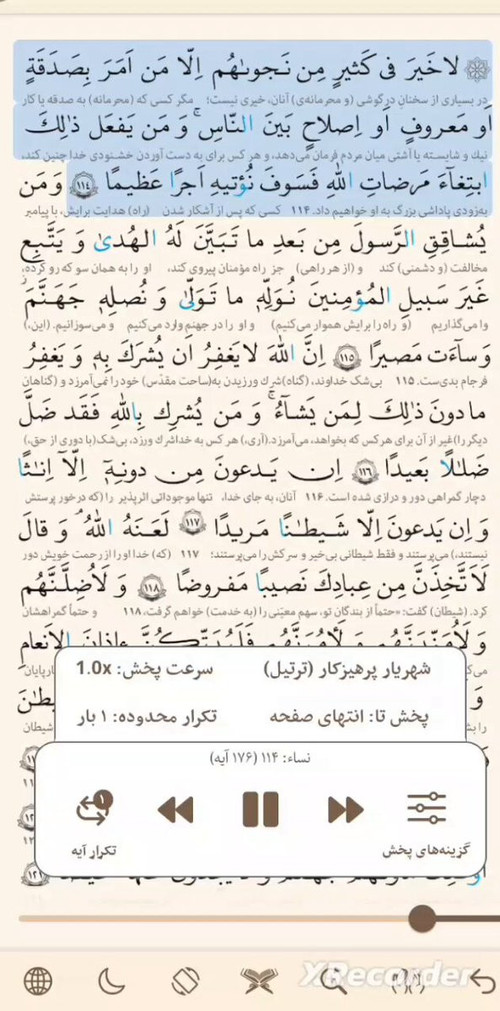 لا خَيرَ فى كَثيرٍ مِن نَجوىٰهُم اِلّا مَن اَمَرَ بِصَدَقَةٍ
در بسیاری از سخنانِ درگوشی (و محرمانه‌ی) آنان، خیری نیست؛ مگر کسی که (محرمانه) به صدقه یا کار
اَو مَعروفٍ اَو اِصلاحٍ بَينَ النّاسِ ۚ وَ مَن يَفعَل ذٰلِكَ
نیک و شایسته یا آشتی میان مردم فرمان می‌دهد، و هر کس برای به دست آوردن خشنودی خدا چنین کند،
ابتِغآءَ مَرضاتِ اللهِ فَسَوفَ نُؤتيهِ اَجرًا عَظيمًا ﴿١١٤﴾ وَ مَن
به‌زودی پاداشی بزرگ به او خواهیم داد. ۱۱۴ کسی که پس از آشکار شدن (راه) هدایت برایش، با پیامبر
يُشاقِقِ الرَّسولَ مِن بَعدِ ما تَبَيَّنَ لَهُ الهُدىٰ وَ يَتَّبِع
مخالفت (و دشمنی) کند و (از هر راهی) جز راه مؤمنان پیروی کند، او را به همان سو که رو کرده،
غَيرَ سَبيلِ المُؤمِنينَ نُوَلِّهٖ ما تَوَلّىٰ وَ نُصلِهٖ جَهَنَّمَ
وا می‌گذاریم (و راه را برایش هموار می‌کنیم) و او را در جهنم وارد می‌کنیم و می‌سوزانیم. (این،)
وَ سآءَت مَصيرًا ﴿١١٥﴾ اِنَّ اللهَ لا يَغفِرُ اَن يُشرَكَ بِهٖ وَ يَغفِرُ
فرجام بدی‌ست. ۱۱۵ بی‌شک خداوند، (گناه) شرک ورزیدن به (ساحت مقدّس) خود را نمی‌آمرزد و (گناهان
ما دونَ ذٰلِكَ لِمَن يَشآءُ ۚ وَ مَن يُشرِك بِاللهِ فَقَد ضَلَّ
دیگر را) غیر از آن برای هر کس که بخواهد، می‌آمرزد. (آری،) هر کس به خدا شرک ورزد، بی‌شک (با دوری از حق،)
ضَلٰلًا بَعيدًا ﴿١١٦﴾ اِن يَدعونَ مِن دونِهٖ اِلّآ اِنٰثًا
دچار گمراهی دور و درازی شده است. ۱۱۶ آنان، به جای خدا، تنها موجوداتی اثرپذیر را (که درخور پرستش
وَ اِن يَدعونَ اِلّا شَيطٰنًا مَريدًا ﴿١١٧﴾ لَعَنَهُ اللهُ ۘ وَ قالَ
نیستند،) می‌پرستند و فقط شیطانی بی‌خیر و سرکش را می‌پرستند؛ ۱۱۷ (که) خدا او را از رحمت خویش دور
لَاَتَّخِذَنَّ مِن عِبادِكَ نَصيبًا مَفروضًا ﴿١١٨﴾ وَ لَاُضِلَّنَّهُم
کرد. (شیطان) گفت: «حتماً از بندگان تو، سهم معیّنی را (به خدمت) خواهم گرفت، ۱۱۸ و حتماً گمراهشان
وَ لَاُمَنِّيَنَّهُم وَ لَاٰمُرَنَّهُم فَلَيُبَتِّكُنَّ ءاذانَ الاَنعامِ
شهریار پرهیزکار (ترتیل) سرعت پخش: 1.0x
پخش تا: انتهای صفحه تکرار محدوده: ۱ بار
نساء: ۱۱۴ (۱۷۶ آیه)
گزینه‌های پخش تکرار آیه
XRecorder